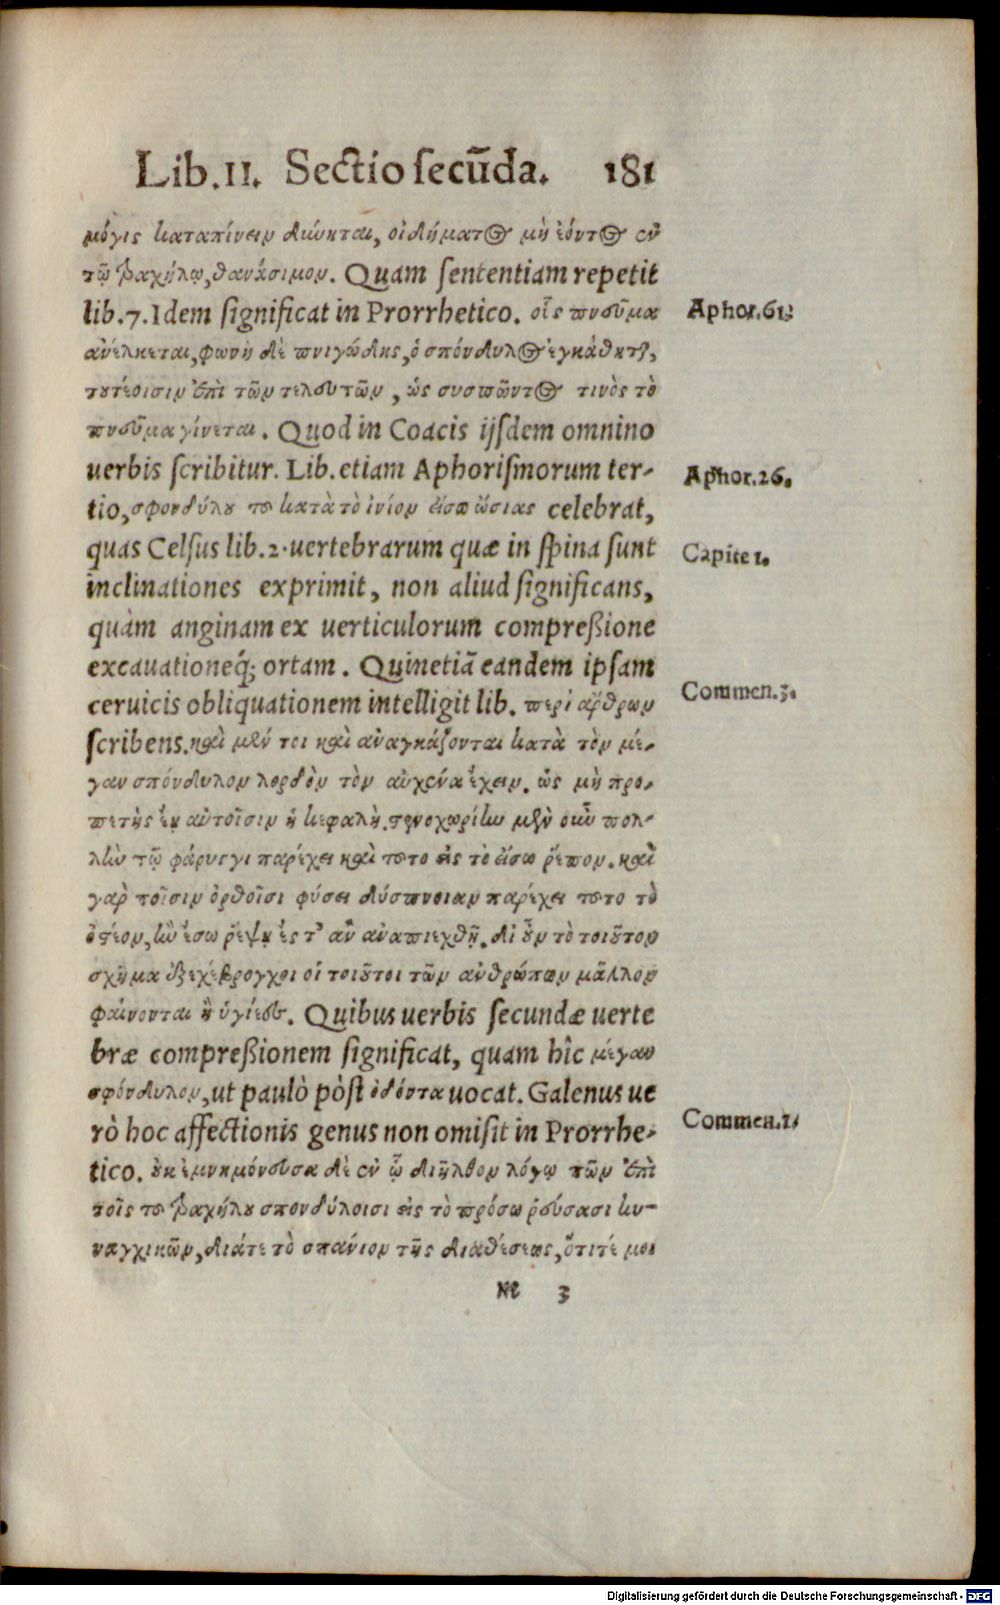 Lib.II. Sectio secũda. 181
μόγις καταπίνειν δύνηται, οἰδήματος μὴ ἐόντος ἐν
τῷ τραχήλῳ, θανάσιμον. Quam sententiam repetit
lib.7. Idem significat in Prorrhetico. οἷς πνεῦμα
Aphor.61.
ἀνέλκεται, φωνὴ δὲ πνιγώδης, ὁ σπόνδυλος ἐγκάθηται,
τουτέοισιν ἐπὶ τῶν τελευτῶν, ὡς συσπῶντος τινὸς τὸ
πνεῦμα γίνεται. Quod in Coacis ijsdem omnino
uerbis scribitur. Lib. etiam Aphorismorum ter-
Aphor.26.
tio, σφονδύλου του κατὰ τὸ ἰνίον εἴσω ὤσιας celebrat,
quas Celsus lib.2. uertebrarum quæ in spina sunt
Capite 1.
inclinationes exprimit, non aliud significans,
quàm anginam ex uerticulorum compreßione
excauationeq́; ortam. Quinetiã eandem ipsam
ceruicis obliquationem intelligit lib. περὶ ἄρθρων
Commen.3.
scribens. καὶ μέν τοι καὶ ἀναγκάζονται κατὰ τὸν μέ-
γαν σπόνδυλον λορδὸν τὸν αὐχένα ἔχειν. ὡς μὴ προ-
πετὴς ἔῃ αὐτοῖσιν ἡ κεφαλὴ. στενοχωρίην μὲν οὖν πολ-
λὴν τῷ φάρυγγι παρέχει καὶ τοῦτο εἰς τὸ εἴσω ῥέπον. καὶ
γὰρ τοῖσιν ὀρθοῖσι φύσει δύσπνοιαν παρέχει τοῦτο τὸ
ὀστέον, ἢν ἔσω ῥέψῃ ἔς τ' ἂν ἀναπιεχθῇ. δι' οὖν τὸ τοιοῦτον
σχῆμα ἐξεχέβρογχοι οἱ τοιοῦτοι τῶν ἀνθρώπων μᾶλλον
φαίνονται ἢ ὑγιέες. Quibus uerbis secundæ uerte
bræ compreßionem significat, quam hîc μέγαν
σφόνδυλον, ut paulò pòst ὀδόντα uocat. Galenus ue
rò hoc affectionis genus non omisit in Prorrhe-
Commen.1.
tico. οὐκ ἐμνημόνευσα δὲ ἐν ᾧ διῆλθον λόγῳ τῶν ἐπὶ
τοῖς του τραχήλου σπονδύλοισι εἰς τὸ πρόσω ῥεύσασι κυ-
ναγχικῶν, διάτε τὸ σπάνιον τῆς διαθέσεως, ὅτιτέ μοι
M 3
Digitalisierung gefördert durch die Deutsche Forschungsgemeinschaft - DFG